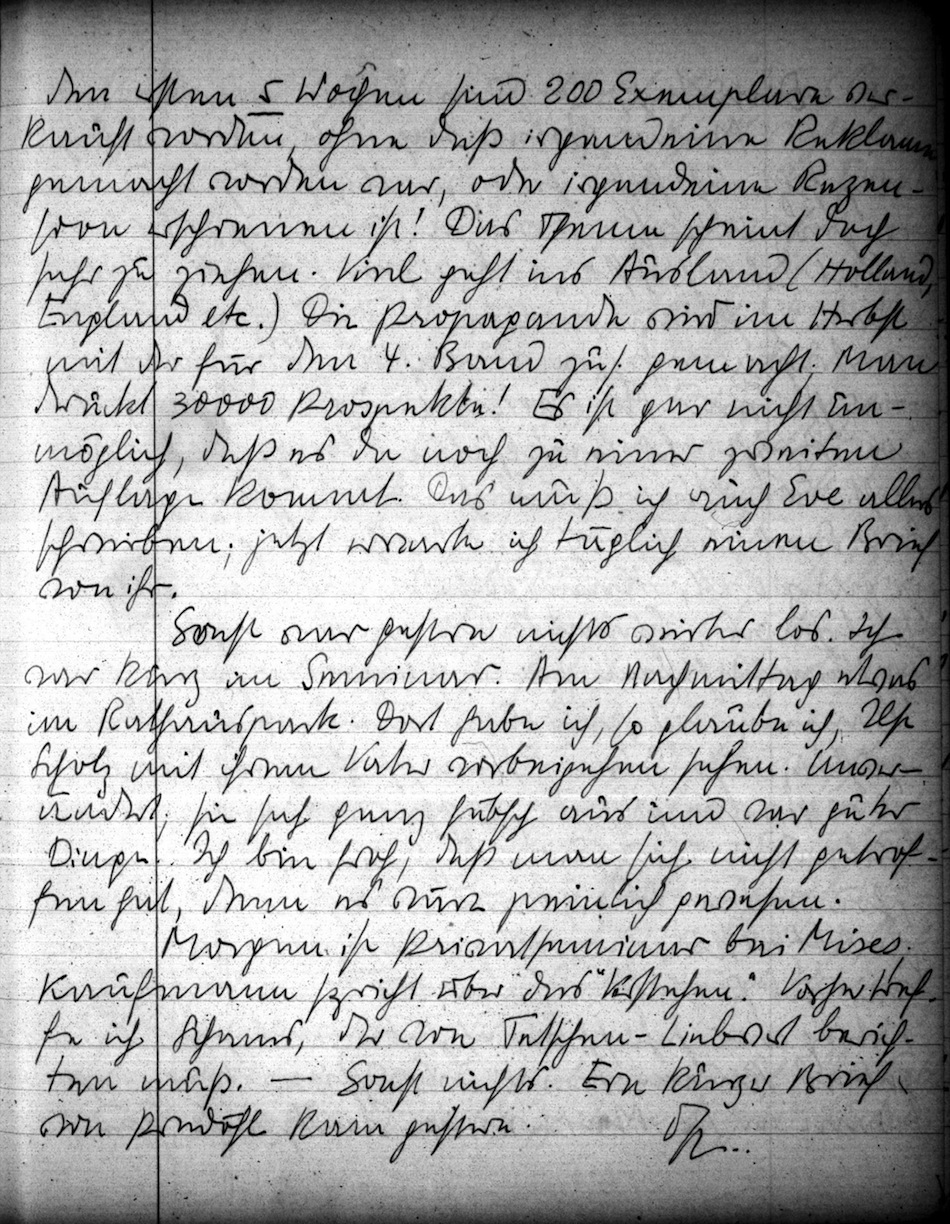 den ersten 5 Wochen sind 200 Exemplare ver-
kauft worden, ohne daß irgendeine Reklame
gemacht worden war, oder irgendeine Rezen-
sion erschienen ist! Das Thema scheint doch
sehr zu ziehen. Viel geht ins Ausland (Holland,
England etc.) Die Propaganda wird im Herbst
mit der für den 4. Band zus. gemacht. Man
druckt 30000 Prospekte! Es ist gar nicht un-
möglich, daß es da noch zu einer zweiten
Auflage kommt. Das muß ich auch Eve alles
schreiben; jetzt erwarte ich täglich einen Brief
von ihr.
Sonst war gestern nichts weiter los. Ich
war kurz im Seminar. Am Nachmittag etwas
im Rathauspark. Dort habe ich, so glaube ich, Ilse
Scholz mit ihrem Vater vorbeigehen sehen. Unver-
ändert, sie sah ganz hübsch aus und war guter
Dinge. Ich bin froh, daß man sich nicht getrof-
fen hat, denn es wäre peinlich gewesen.
Morgen ist Privatseminar bei Mises.
Kaufmann spricht über das "Verstehen". Vorher tref-
fe ich Schams, der von Tetschen-Liebwerd berich-
ten muß. — Sonst nichts. Ein kurzer Brief
von Predöhl kam gestern.